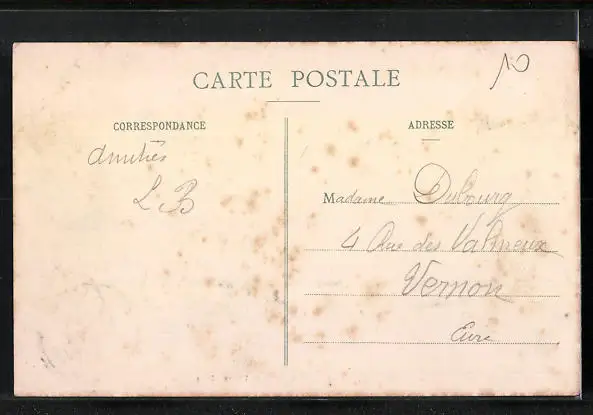 CARTE POSTALE
10
CORRESPONDANCE
Amitiés
L B
ADRESSE
Madame Dubourg
4 Rue des Valmeux
Vernon
Eure